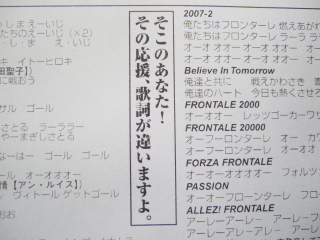 しまえーいじ
たちのえーいじ（×2）
し・ま　え・いじ
キ　イトーヒロキ
田聖子】）
に戦おう
サル　ゴール
さとる　ラーララー
やーまぎしさとる
なーはー　ゴール　ゴール
ール　オーオオオー
情【アン・ルイス】）
ヴィトール ゲットゴール
お
そこのあなた！
その応援、歌詞が違いますよ。
2007-2
俺たちはフロンターレ 燃えあがれ
俺たちはフロンターレ ラーラ ララ
オーオ オオー オーオ オオー オー
オーオ オオー オーオ オオー オー
Believe In Tomorrow
俺達と共に　戦えかわさき 青
俺達のハート　今日も熱くさせろ
FRONTALE 2000
オーオオー　レッツゴーカーワサ
FRONTALE 20000
オーフーロンターレ　オー
オーフーロンターレ　オー
FORZA FRONTALE
オーオオオオオー　フォルツ
PASSION
オーオオーフローンターレ　フロ
ALLEZ! FRONTALE
アーレーアーレ－　アーレーア
アーレーアーレ－　アーレーア